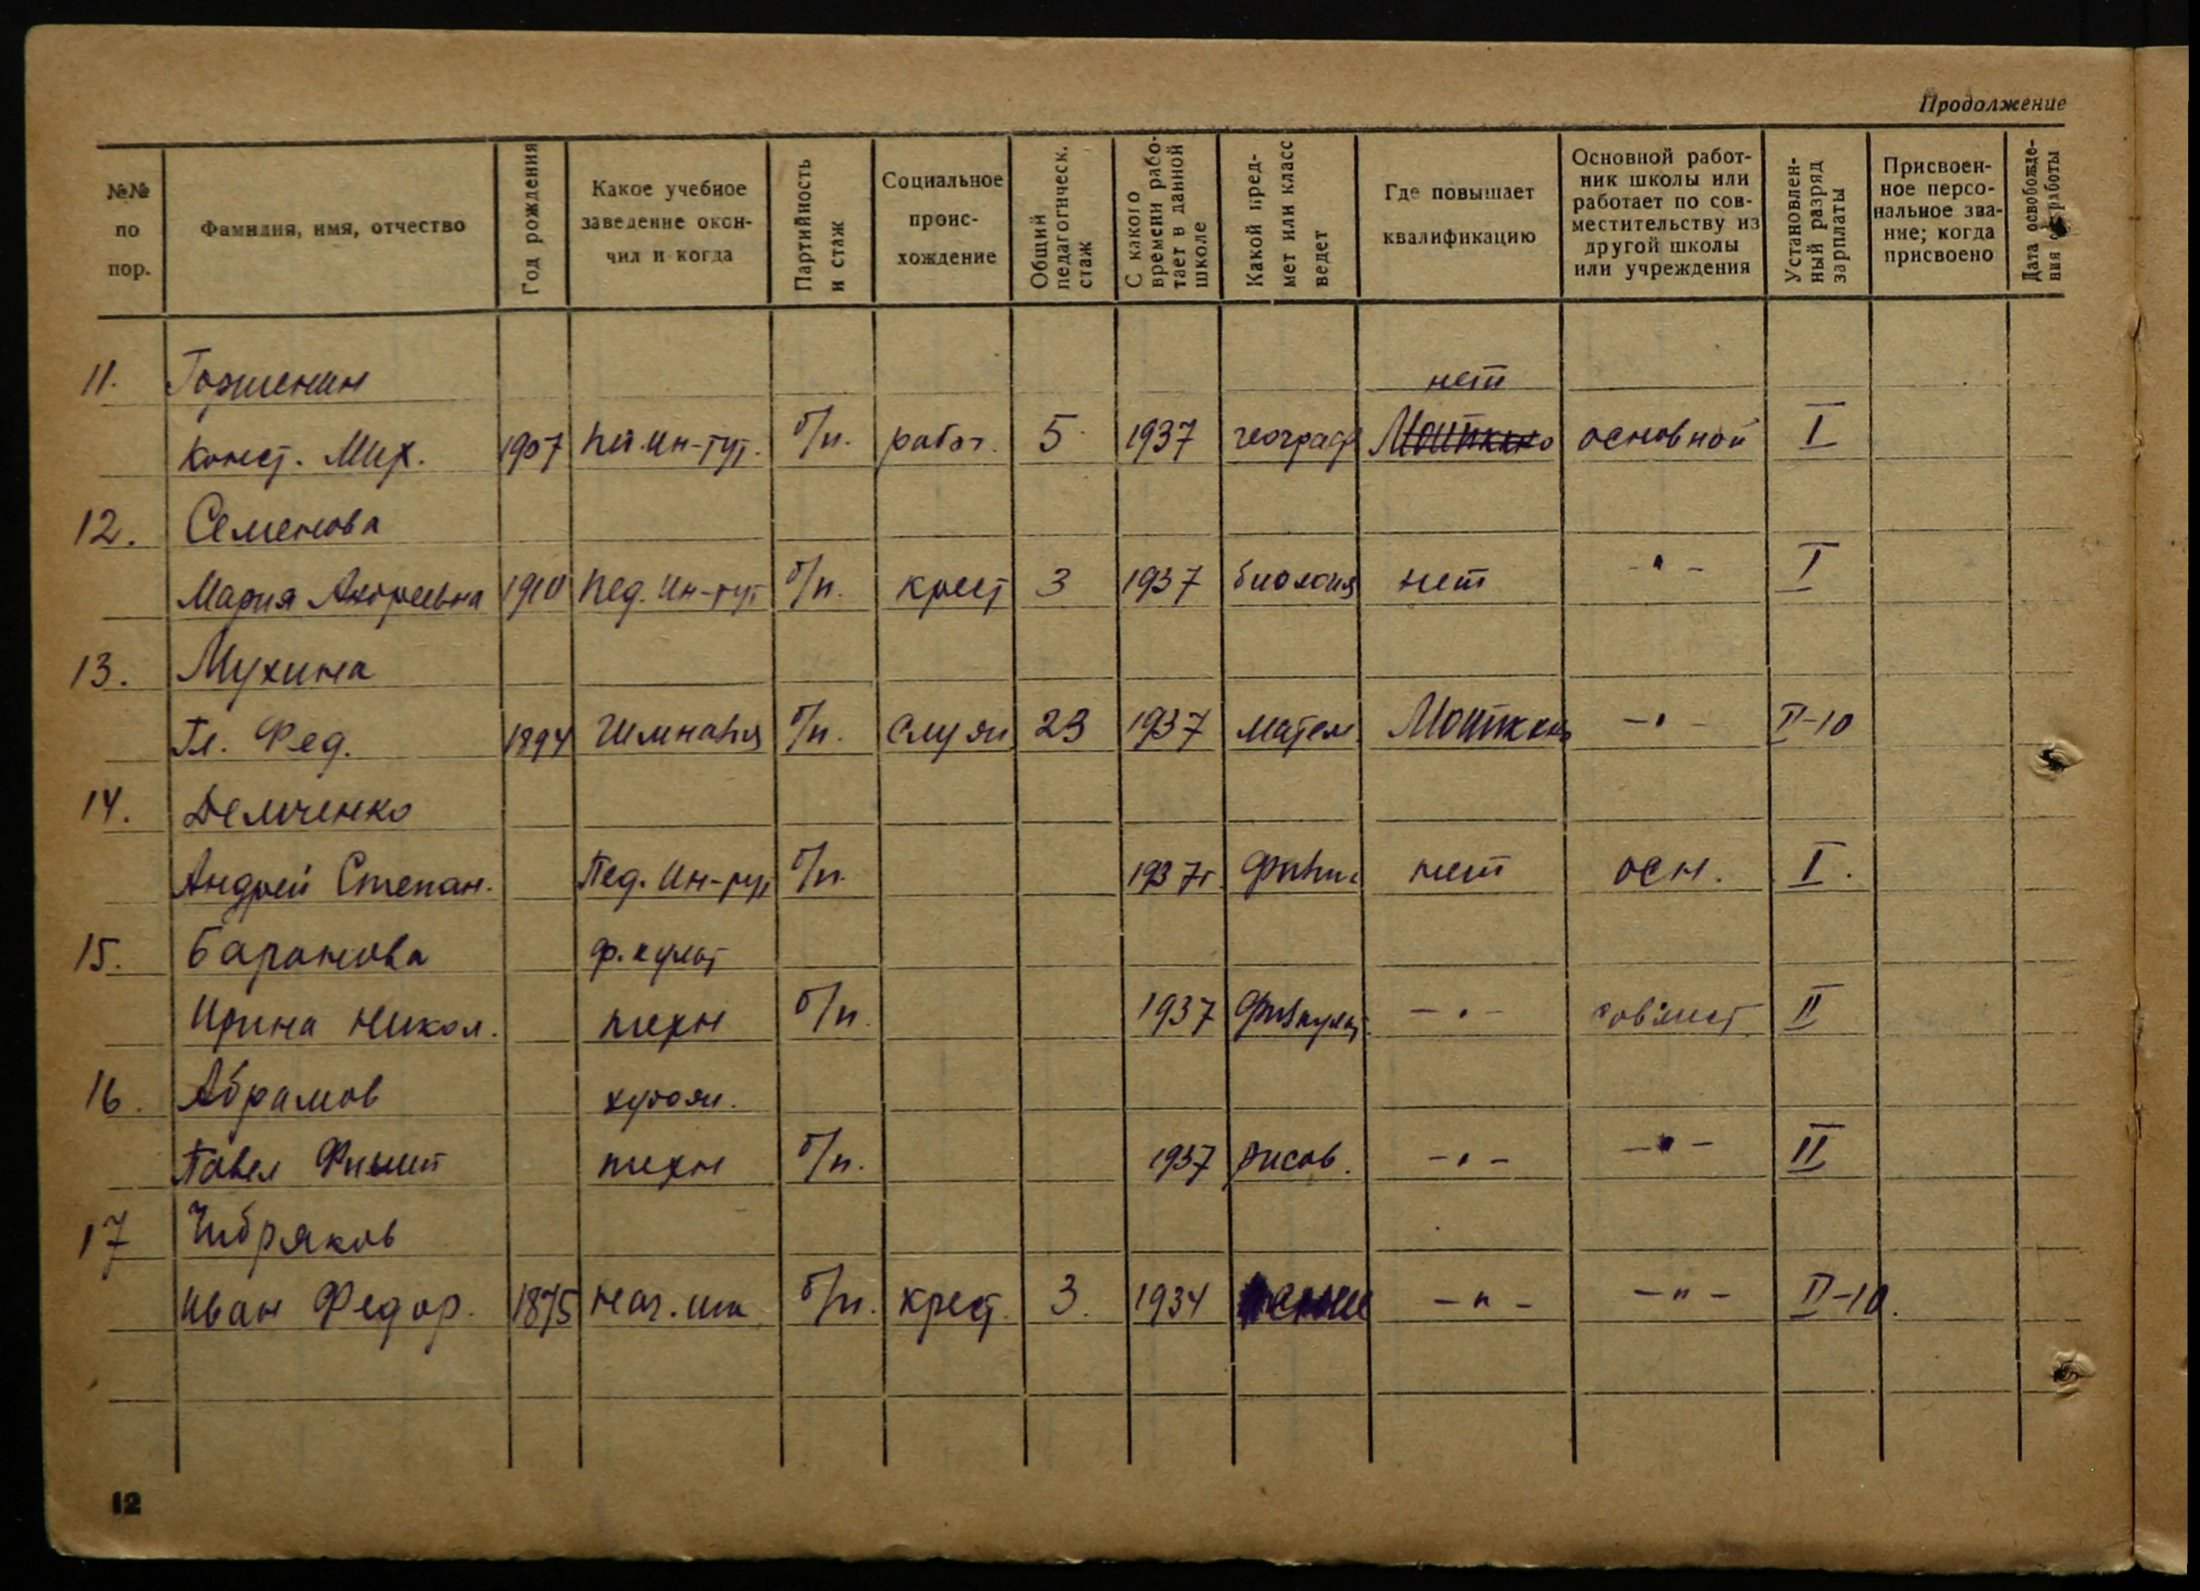 Продолжение
№№ по пор.
Фамилия, имя, отчество
Год рождения
Какое учебное заведение окончил и когда
Партийность и стаж
Социальное происхождение
Общий педагогическ. стаж
С какого времени работает в данной школе
Какой предмет или класс ведет
Где повышает квалификацию
Основной работник школы или работает по совместительству из другой школы или учреждения
Установленный разряд зарплаты
Присвоенное персональное звание; когда присвоено
Дата освобождения от работы
11. нет
Конст. Мих. 1907 ин-тут. б/п. рабоч. 5 1937 географ основной I
12. Семенова
Мария Андреевна 1910 Пед. Ин-тут б/п. крест 3 1937 биология нет -"- I
13. Мухина
Гл. Фед. 1894 Гимназия б/п. служ 23 1937 матем -"- II-10
14. Демченко
Андрей Степан. Пед. Ин-тут б/п. 1937г. физик нет осн. I.
15. Баранова ф.культ
Ирина Никол. техн б/п. 1937 физкульт. -"- совмест II
16. Абрамов худож.
Павел Филип техн б/п. 1937 рисов. -"- -"- II
17 Чибряков
Иван Федор. 1875 Нач. шк б/п. крест. 3. 1934 пение -"- -"- II-10.
12